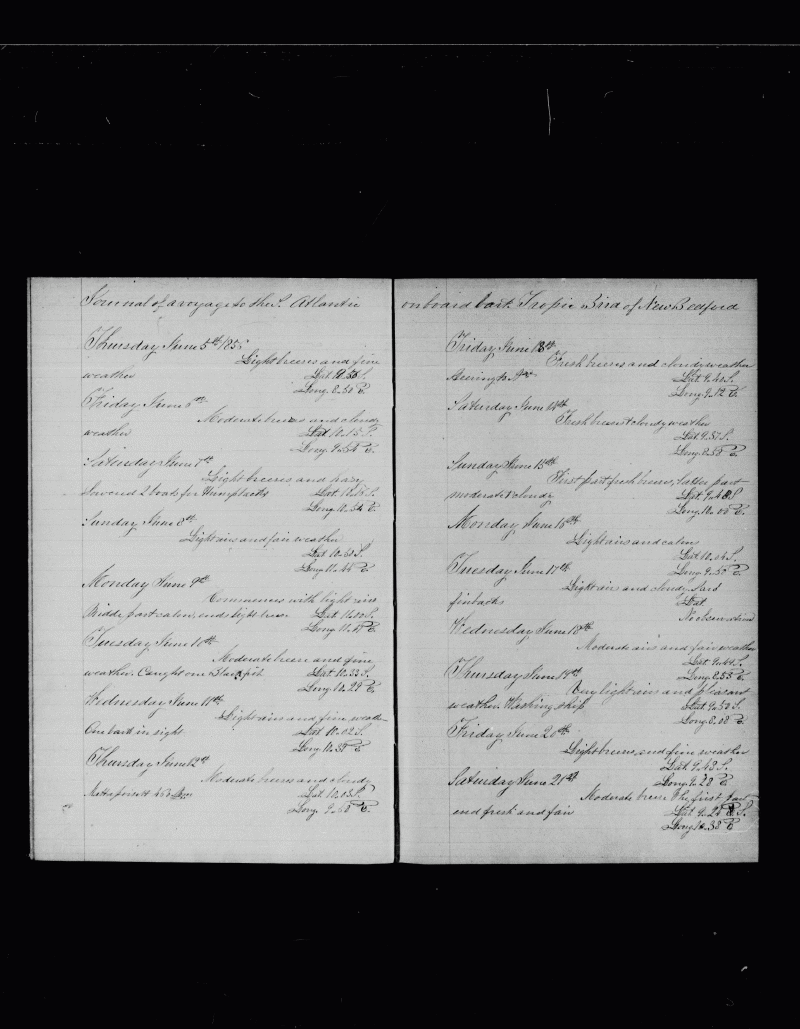 Journal of a voyage to the S. Atlantic
Thursday June 5th 185
Light breeses and fine
weather Lat.
Long. 8.50 E.
Friday June 6th
Moderate breeses and cloudy
weather Lat 10.15 S.
Long. 9.54 E.
Saturday June 7th
Light breeses and hazy
Lowered 2 boats for Humpbacks Lat. S.
Long. 10.54 E.
Sunday June 8th
Light airs and fair weather
Lat S.
Long 11.44 E
Monday June 9th
Commences with light airs
Midde part calm, ends light breese Lat S.
Long. E
Tuesday June 10th
Moderate breese and fine
weather. Caught one Blackfish Lat. S.
Long. 10.29 E.
Wednesday June 11th
Light airs and fine weather
One bark in sight. Lat 10.02 S.
Long. E
Thursday June 12th
Moderate breeses and cloudy
Lat. 10.03 S.
Long. E.
onboard bark Tropic Bird of New Bedford
Friday June 13th
Fresh breeses and cloudy weather
Steering to Lat. S.
Long. 9.12 E.
Saturday June 14th
Fresh breese & cloudy weather
Lat 9.37 S.
Long. 8.58 E.
Sunday June 15th
First part fresh breese, latter part
moderate & cloudy Lat. S
Long. 10.00 E.
Monday June 16th
Light airs and calms
Lat 10.04 S.
Tuesday June 17th Long. 9.50 E.
Light airs and cloudy. Saw
finbacks Lat
No observations
Wednesday June 18th
Moderate airs and fair weather
Lat. 9.44 S.
Thursday June 19th Long. 8.53 E.
Very light airs and pleasant
weather. Washing ship Lat 9.50 S.
Long. 8.08 E.
Friday June 20th
Light breeses and fine weather
Lat 9.43 S.
Saturday June 21st Long. 9.28 E.
Moderate breese the first part
end fresh and fair Lat. S.
Long. E